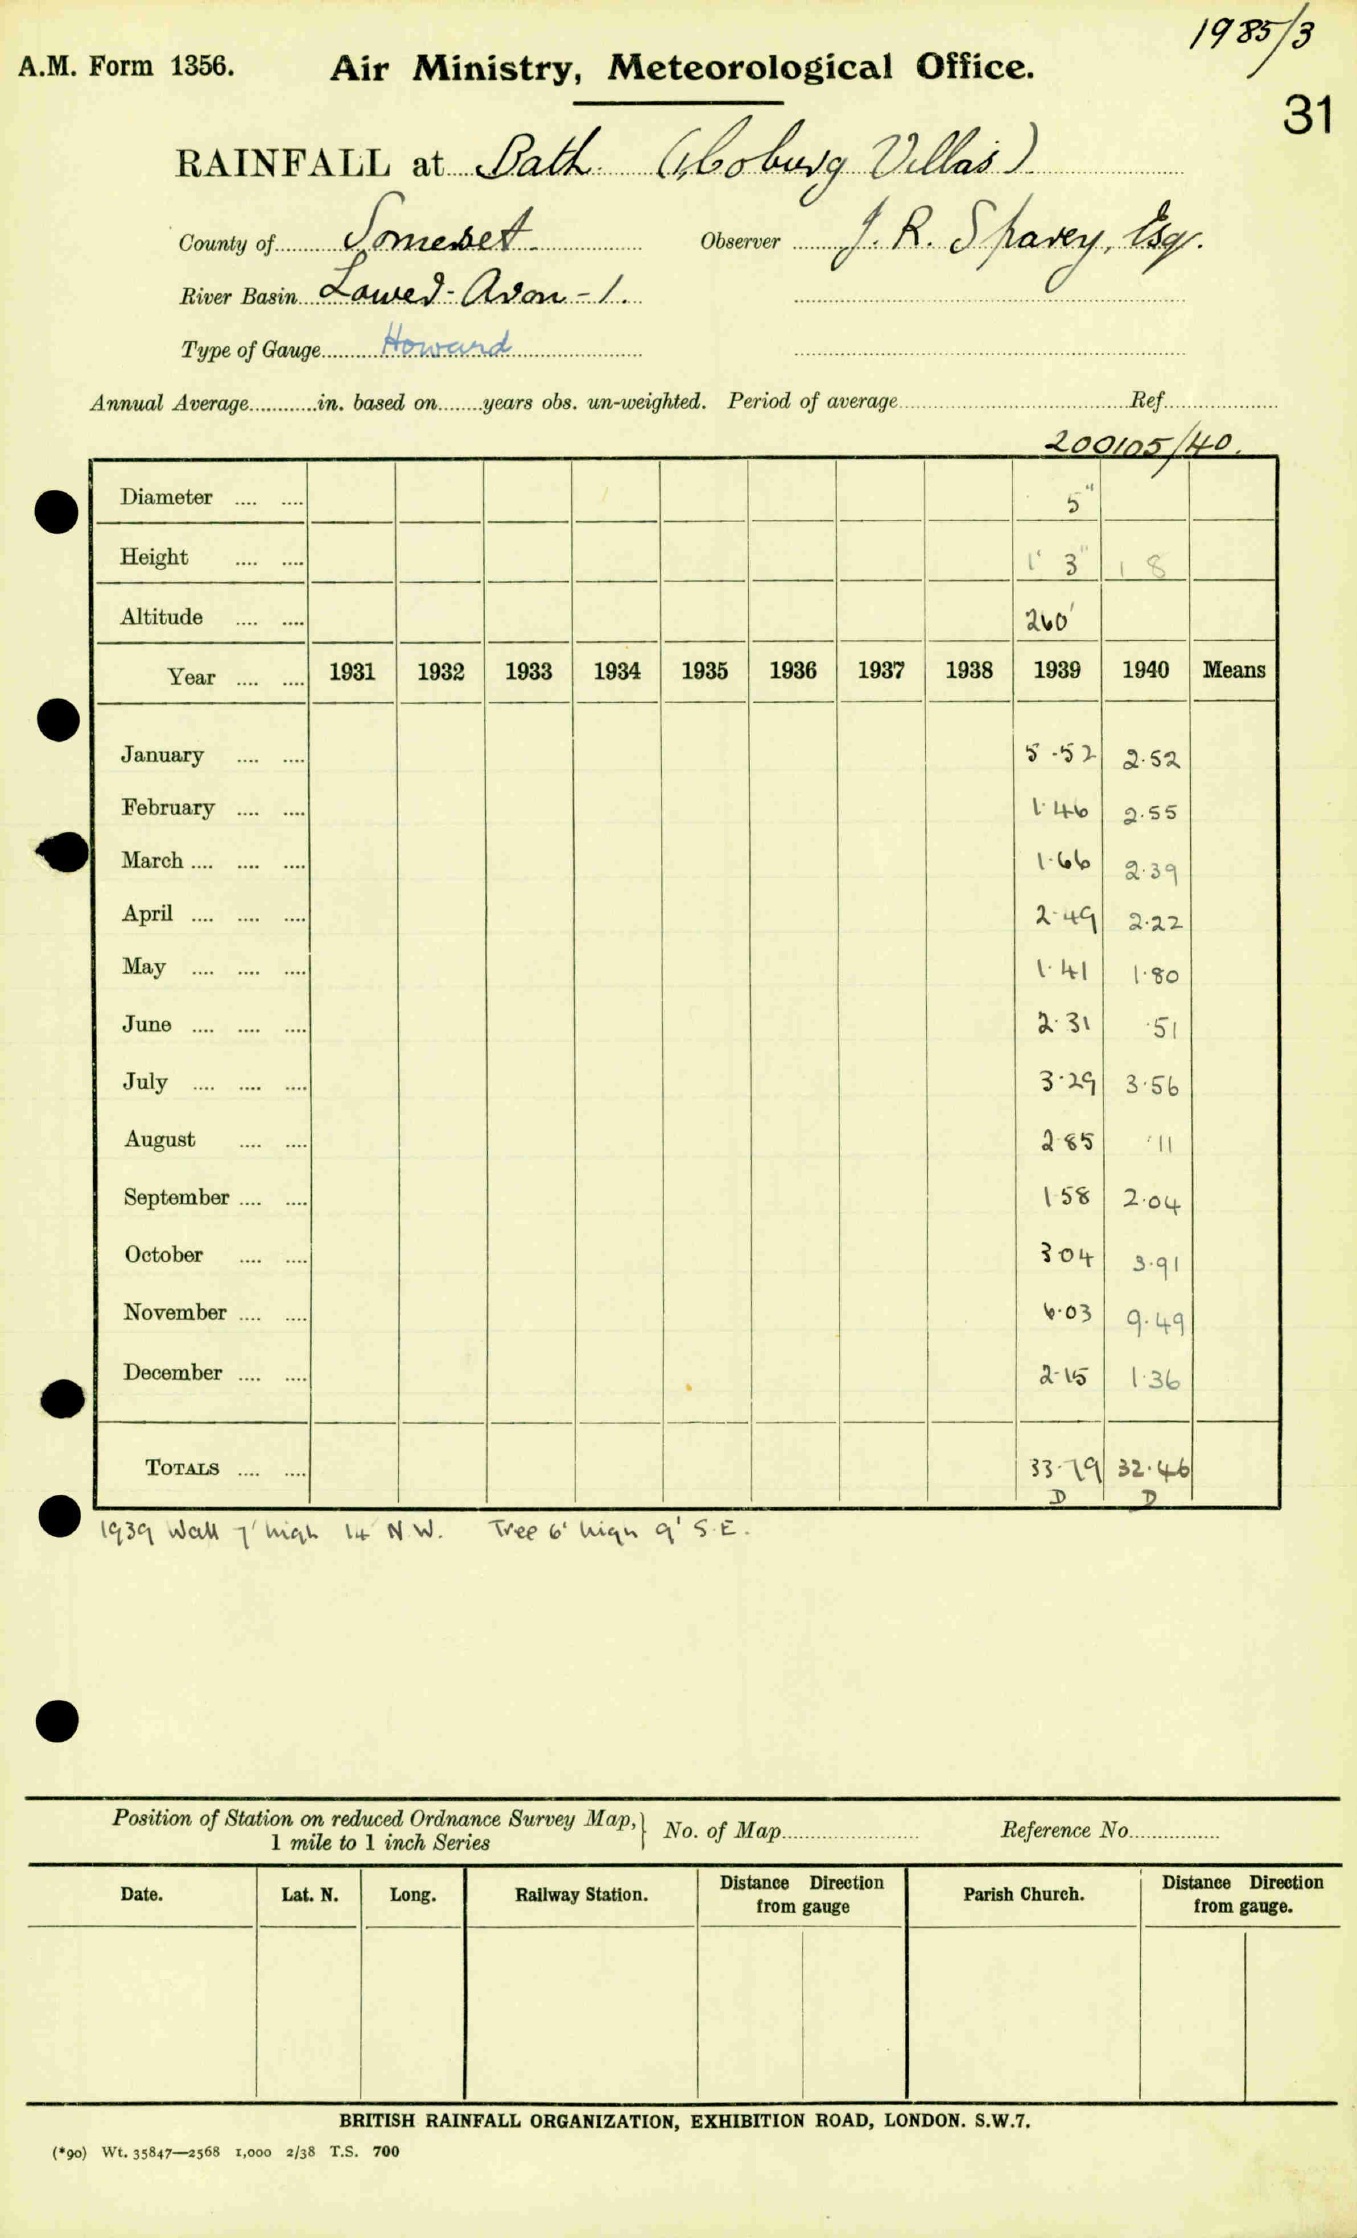 1985/3
A.M. Form 1356. Air Ministry, Meteorological Office.
31
RAINFALL at Bath. (1, Coburg Villas)
County of Somerset. Observer J. R. Sparey, Esq.
River Basin Lower Avon - 1.
Type of Gauge Howard
Annual Average............in. based on........years obs. un-weighted. Period of average.................... Ref....................
200105/40.
Diameter .... .... 5"
Height .... .... 1' 3" 1 8
Altitude .... .... 260'
Year .... .... 1931 1932 1933 1934 1935 1936 1937 1938 1939 1940 Means
January .... .... 5.52 2.52
February .... .... 1.46 2.55
March .... .... .... 1.66 2.39
April .... .... .... 2.49 2.22
May .... .... .... 1.41 1.80
June .... .... .... 2.31 .51
July .... .... .... 3.29 3.56
August .... .... 2.85 .11
September .... .... 1.58 2.04
October .... .... 3.04 3.91
November .... .... 6.03 9.49
December .... .... 2.15 1.36
TOTALS .... .... 33.79 32.46
D D
1939 Wall 7' high 14' N.W. Tree 6' high 9' S.E.
Position of Station on reduced Ordnance Survey Map, 1 mile to 1 inch Series } No. of Map........................ Reference No................
Date. Lat. N. Long. Railway Station. Distance Direction from gauge Parish Church. Distance Direction from gauge.
BRITISH RAINFALL ORGANIZATION, EXHIBITION ROAD, LONDON. S.W.7.
(*90) Wt. 35847—2568 1,000 2/38 T.S. 700